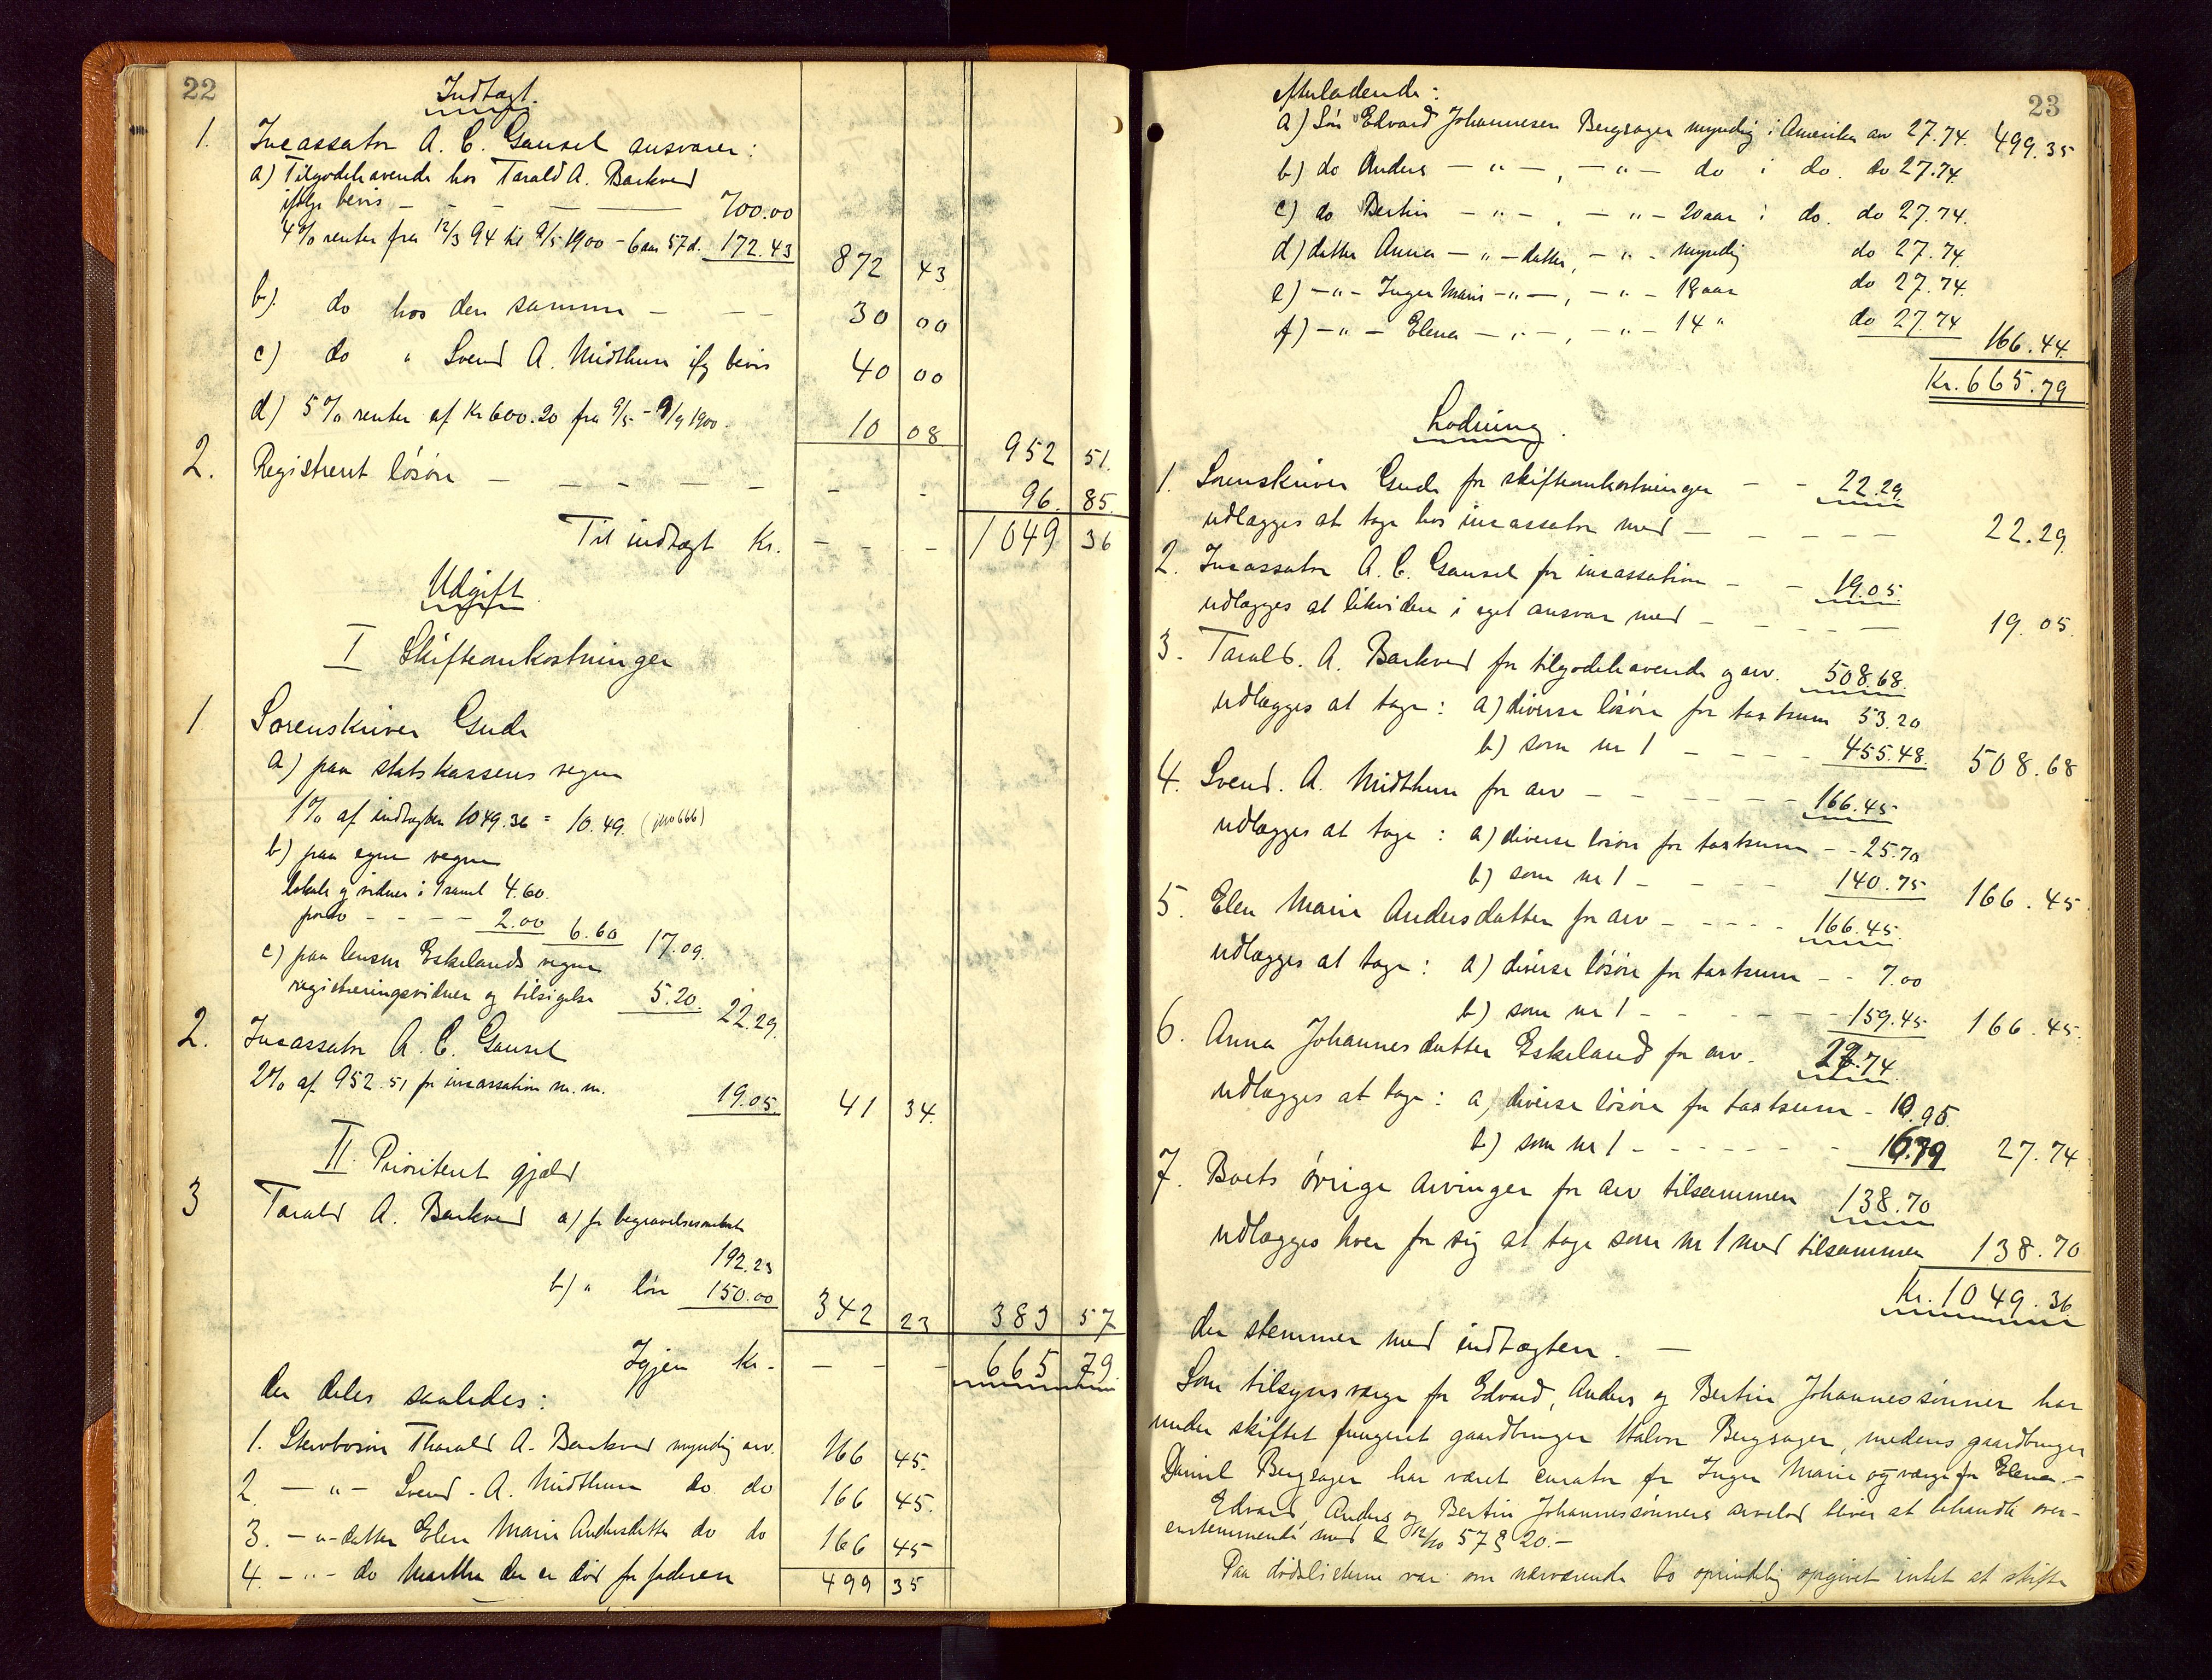 22
Indtægt.
1. Incassator A. C. Gausel ansvarer:
a) Tilgodehavende hos Tarald A. Barkved
ifølge bevis - - - 700.00
4% renter fra 12/3 94 til 9/5 1900 - 6 aar 57 d. 172.43 872 43
b) do hos den samme - - - 30 00
c) do " Svend A. Midthun ifg bevis 40 00
d) 5% renter af Kr 600.20 fra 9/5 - 9/9 1900. 10 08 952 51.
2. Registrert løsøre - - - - - - - 96. 85.
Til indtægt Kr. - - - 1049 36
Udgift.
I Skifteomkostninger
1 Sorenskriver Gude
a) paa statskassens vegne
1% af indtægten 1049.36 = 10.49. (jno 666)
b) paa egne vegne
lokale og vidner i 1 saml 4.60.
porto - - - - 2.00 6.60 17.09.
c) paa lensm Eskelands vegne
registreringsvidner og tilsigelse 5.20. 22.29.
2. Incassator A. C. Gausel
2% af 952.51 for incassation m. m. 19.05 41 34.
II. Prioritert gjæld
3 Tarald A. Barkved a) for begravelsesomkost
192.23
b) " løn 150.00 342 23 383 57
Igjen Kr. - - - 665 79
der deles saaledes:
1. Stervbosøn Tharald A. Barkved myndig arv. 166 45.
2. - " - Svend A. Midthun do do 166 45.
3. - " - datter Elen Marie Andersdatter do do 166 45
4. - " - do Martha der er død før faderen 499 35
23
efterladende:
a) Søn Edvard Johannesen Bergsager myndig i Amerika arv 27.74. 499.35
b) do Anders - " - , - " - do i do. do 27.74.
c) do Bertin - " - , - " - 20 aar i do. do 27.74.
d) datter Anna - " - datter, - " - myndig do 27.74.
e) - " - Inger Marie - " - , - " - 18 aar do 27.74.
f) - " - Elena - " - , - " - 14 " do 27.74 166.44.
Kr. 665.79
Lodning.
1. Sorenskriver Gude for skifteomkostninger - - 22.29.
udlægges at tage hos incassator med - - - - - 22.29.
2. Incassator A. C. Gausel for incassation - - 19.05.
udlægges at likvidere i eget ansvar med - - - - - 19.05.
3. Tarald. A. Barkved for tilgodehavende og arv. 508.68.
udlægges at tage: a) diverse løsøre for taxtsum 53.20
b) som nr 1 - - - - 455.48. 508.68
4. Svend. A. Midthun for arv - - - - - - 166.45
udlægges at tage: a) diverse løsøre for taxtsum - - 25.70
b) som nr 1 - - - 140.75 166.45.
5. Elen Marie Andersdatter for arv - - - - 166.45.
udlægges at tage: a) diverse løsøre for taxtsum - - 7.00
b) som nr 1 - - - - - 159.45 166.45.
6. Anna Johannesdatter Eskeland for arv - 27.74.
udlægges at tage: a) diverse løsøre for taxtsum - 10.95.
b) som nr 1 - - - - - - 16.79 27.74
7. Boets øvrige arvinger for arv tilsammen 138.70
udlægges hver for sig at tage som nr 1 med tilsammen 138.70
Kr. 1049.36
der stemmer med indtægten. -
Som tilsynsværge for Edvard, Anders og Bertin Johannessønner har
under skiftet fungeret gaardbruger Halvor Bergsager, medens gaardbruger
Daniel Bergsager har været curator for Inger Marie og værge for Elena. -
Edvard, Anders og Bertin Johannessønners arvelod bliver at behandle over-
ensstemmende med L 12/10 57 § 20. -
Paa dødslisterne var om nærværende bo oprindelig opgivet intet at skifte